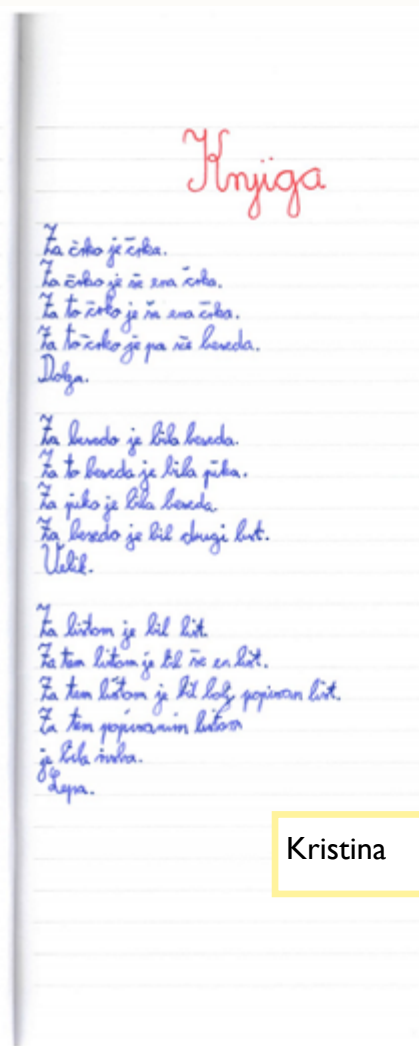 Knjiga
Za črko je črka.
Za črko je še ena črka.
Za to črko je še ena črka.
Za to črko je pa že beseda.
Dolga.
Za besedo je bila beseda.
Za to beseda je bila pika.
Za piko je bila beseda.
Za besedo je bil drugi list.
Velik.
Za listom je bil list.
Za tem listom je bil še en list.
Za tem listom je bil bolj popisan list.
Za tem popisanim listom
je bila
Lepa.
Kristina